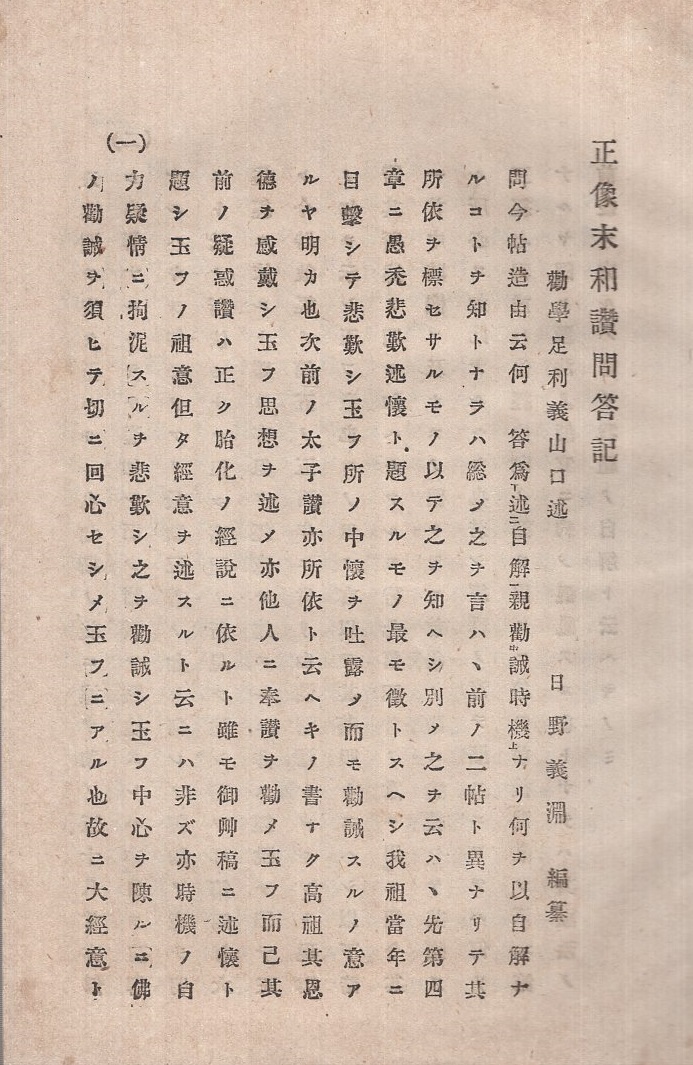 正像末和讃問答記
勸學足利義山口述　日野義淵　編纂
問今帖造由云何　答爲下述二自解一親勸中誡時機上ナリ何ヲ以自解ナ
ルコトヲ知トナラハ総メ之ヲ言ハヽ前ノ二帖ト異ナリテ其
所依ヲ標セサルモノ以テ之ヲ知ヘシ別メ之ヲ云ハヽ先第四
章ニ愚禿悲歎述懷ト題スルモノ最モ徵トスヘシ我祖當年ニ
目擊シテ悲歎シ玉フ所ノ中懷ヲ吐露メ而モ勸誡スルノ意ア
ルヤ明カ也次前ノ太子讃亦所依ト云ヘキノ書ナク高祖其恩
德ヲ感戴シ玉フ思想ヲ述メ亦他人ニ奉讃ヲ勸メ玉フ而己其
前ノ疑惑讃ハ正ク胎化ノ經說ニ依ルト雖モ御艸稿ニ述懷ト
題シ玉フノ祖意但タ經意ヲ述スルト云ニハ非ズ亦時機ノ自
力疑情ニ狗泥スルヲ悲歎シ之ヲ勸誡シ玉フ中心ヲ陳ルニ佛
ノ勸誡ヲ須ヒテ切ニ回心セシメ玉フニアル也故ニ大經意ト
(一)